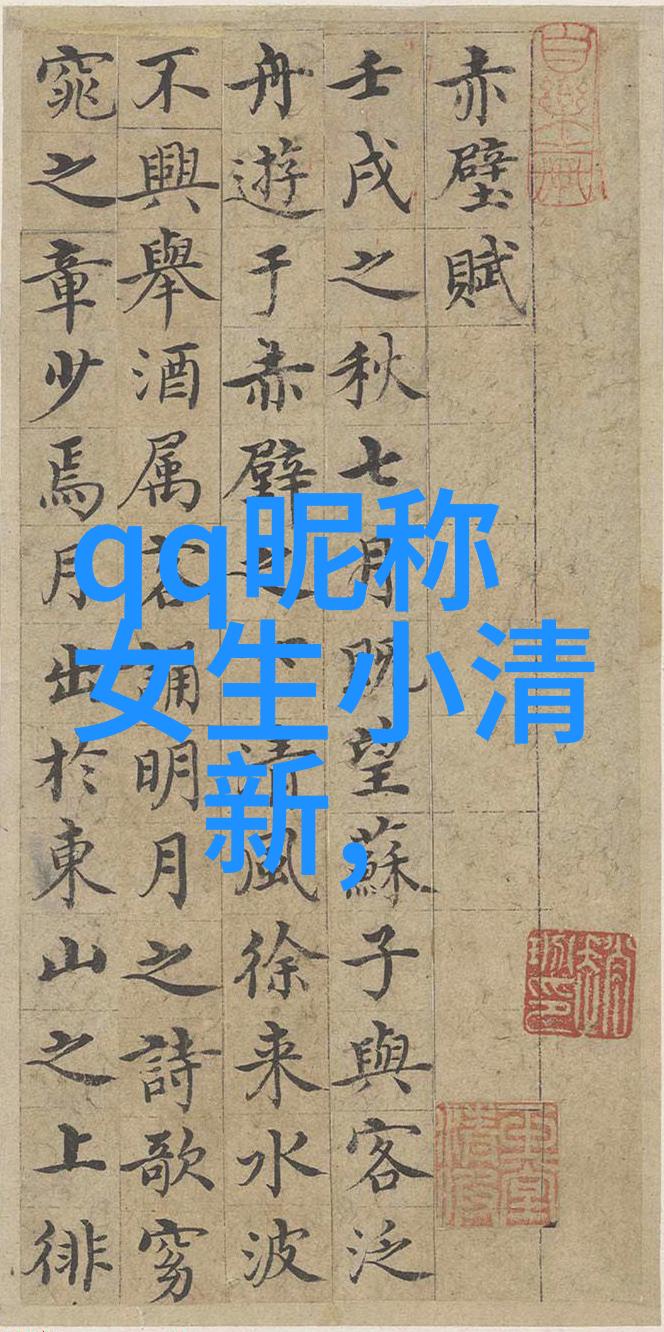 赤壁賦
壬戌之秋七月既望蘇子與客泛
舟遊于赤壁之下清風徐来水波
不興舉酒属客誦明月之詩歌窈
窕之章少焉月出於東山之上徘
qq昵称
女生小清
新,